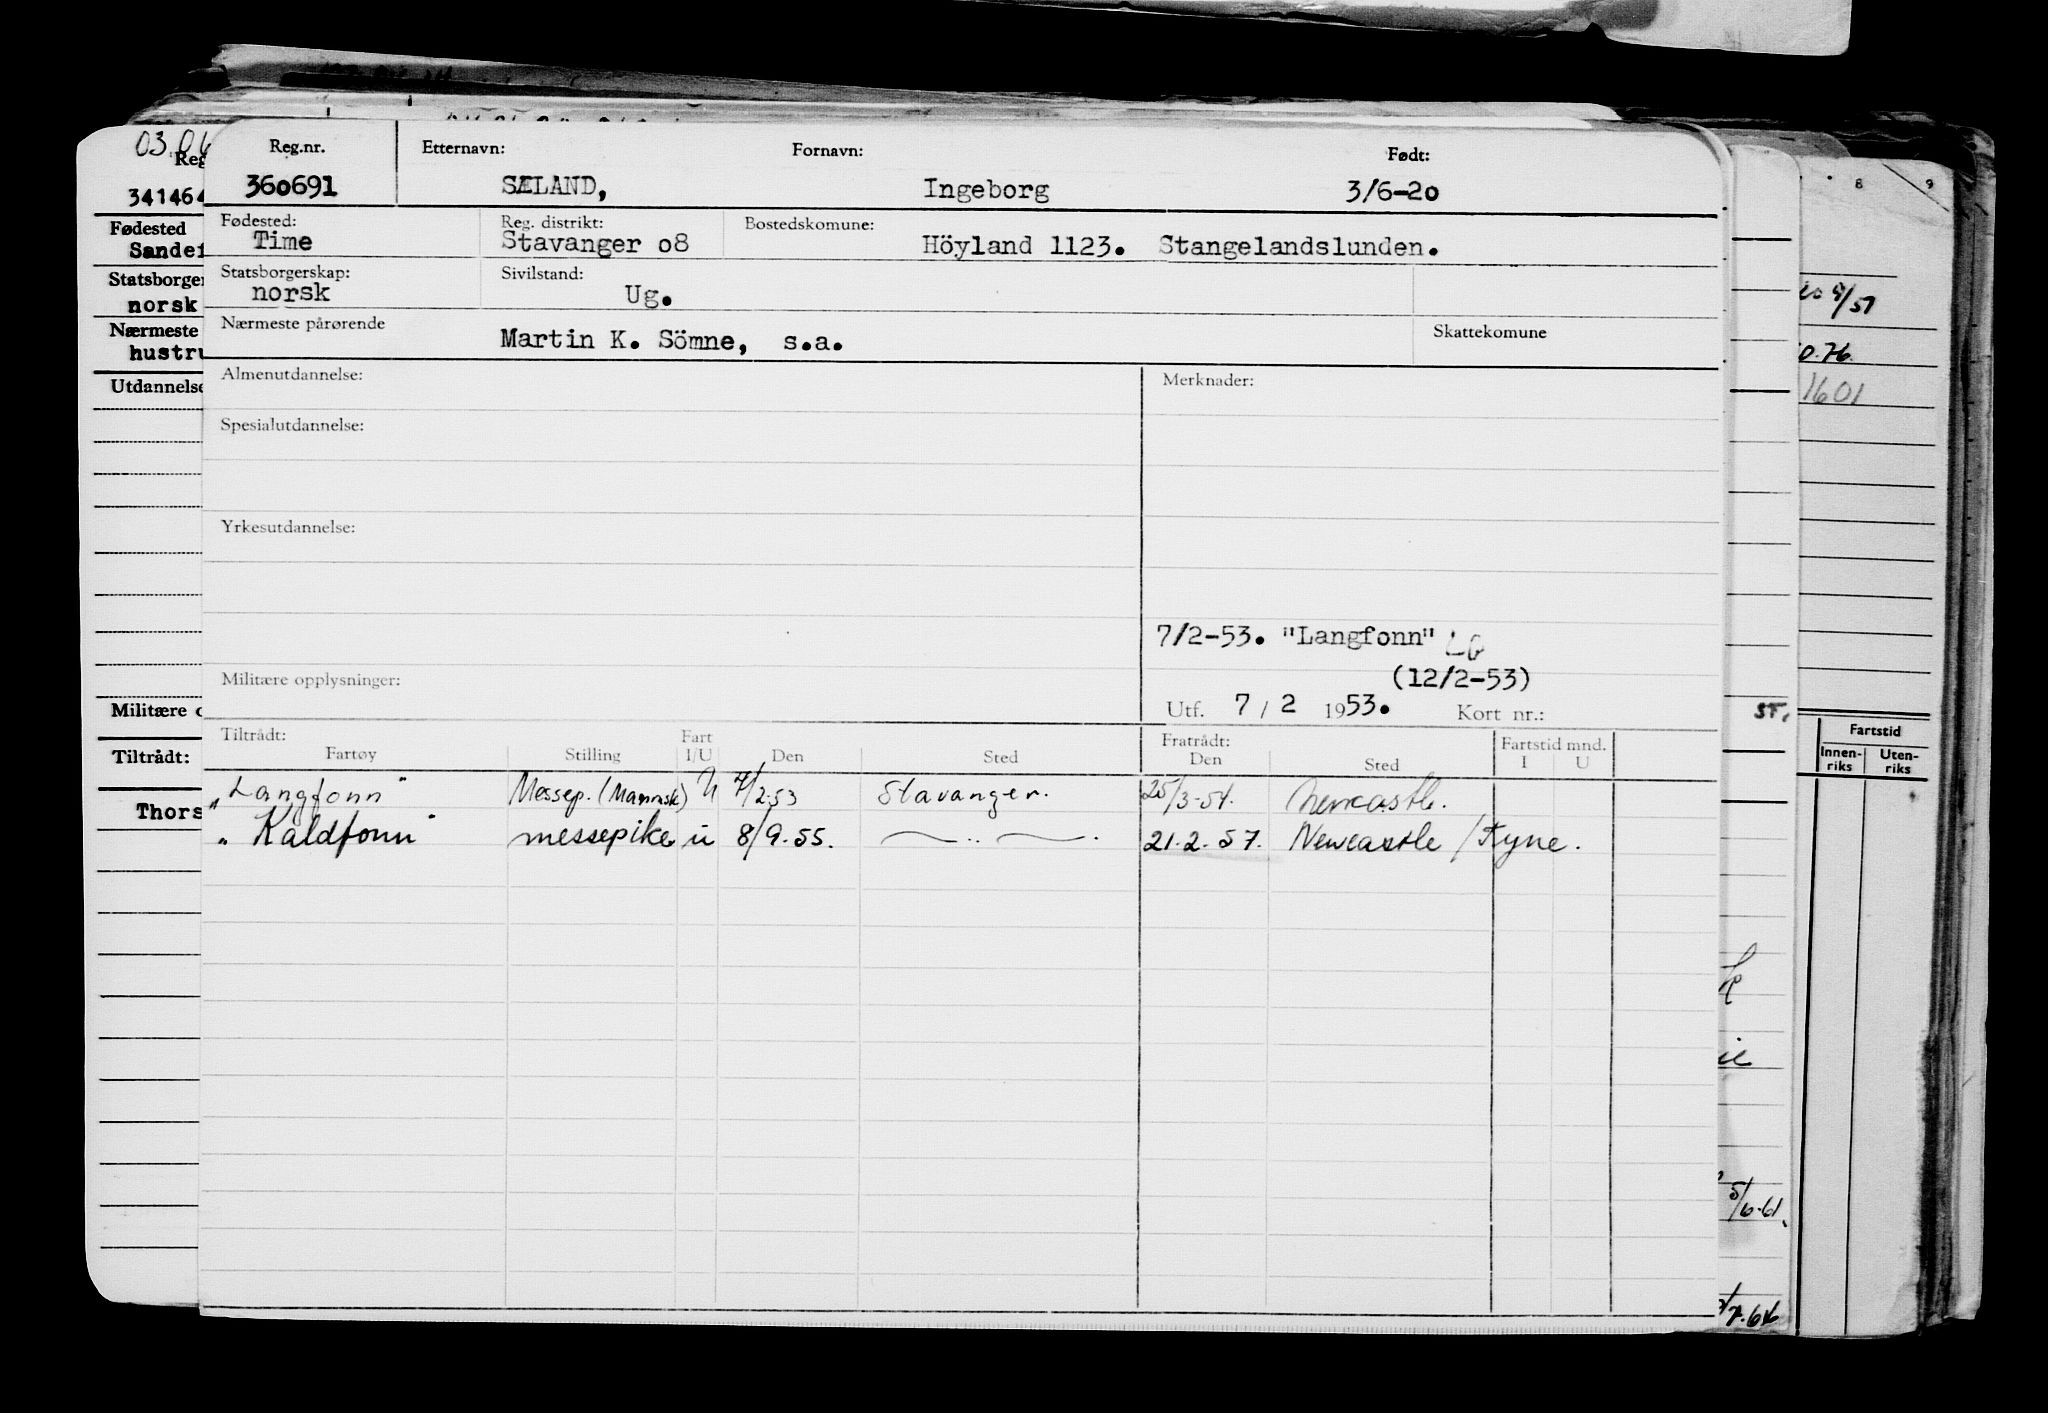 03.06
Reg.nr. Etternavn: Fornavn: Født:
360691 SÆLAND, Ingeborg 3/6-20
Fødested: Reg. distrikt: Bostedskomune:
Time Stavanger o8 Höyland 1123. Stangelandslunden.
Statsborgerskap: Sivilstand:
norsk Ug.
Nærmeste pårørende Skattekomune
Martin K. Sömne, s.a.
Almenutdannelse: Merknader:
Spesialutdannelse:
Yrkesutdannelse:
7/2-53. "Langfonn"
(12/2-53)
Militære opplysninger:
Utf. 7 / 2 1953. Kort nr.:
Tiltrådt: Fratrådt:
Fartøy Stilling Fart I/U Den Sted Den Sted Fartstid mnd. I U
"Langfonn" Messep. (Mannsk) U 7/2-53 Stavanger. 25/3-54. Newcastle.
"Kaldfonn" messepike u 8/9-55. — " — . 21.2.57. Newcastle / Tyne.
Reg
341464
Fødested
Sandef
Statsborger
norsk
Nærmeste
hustru
Utdannelse
Militære o
Tiltrådt:
Thors
8 9
5/51
0.76.
1601
ST.
Fartstid
Innen-riks Uten-riks
5/6-61.
7.64